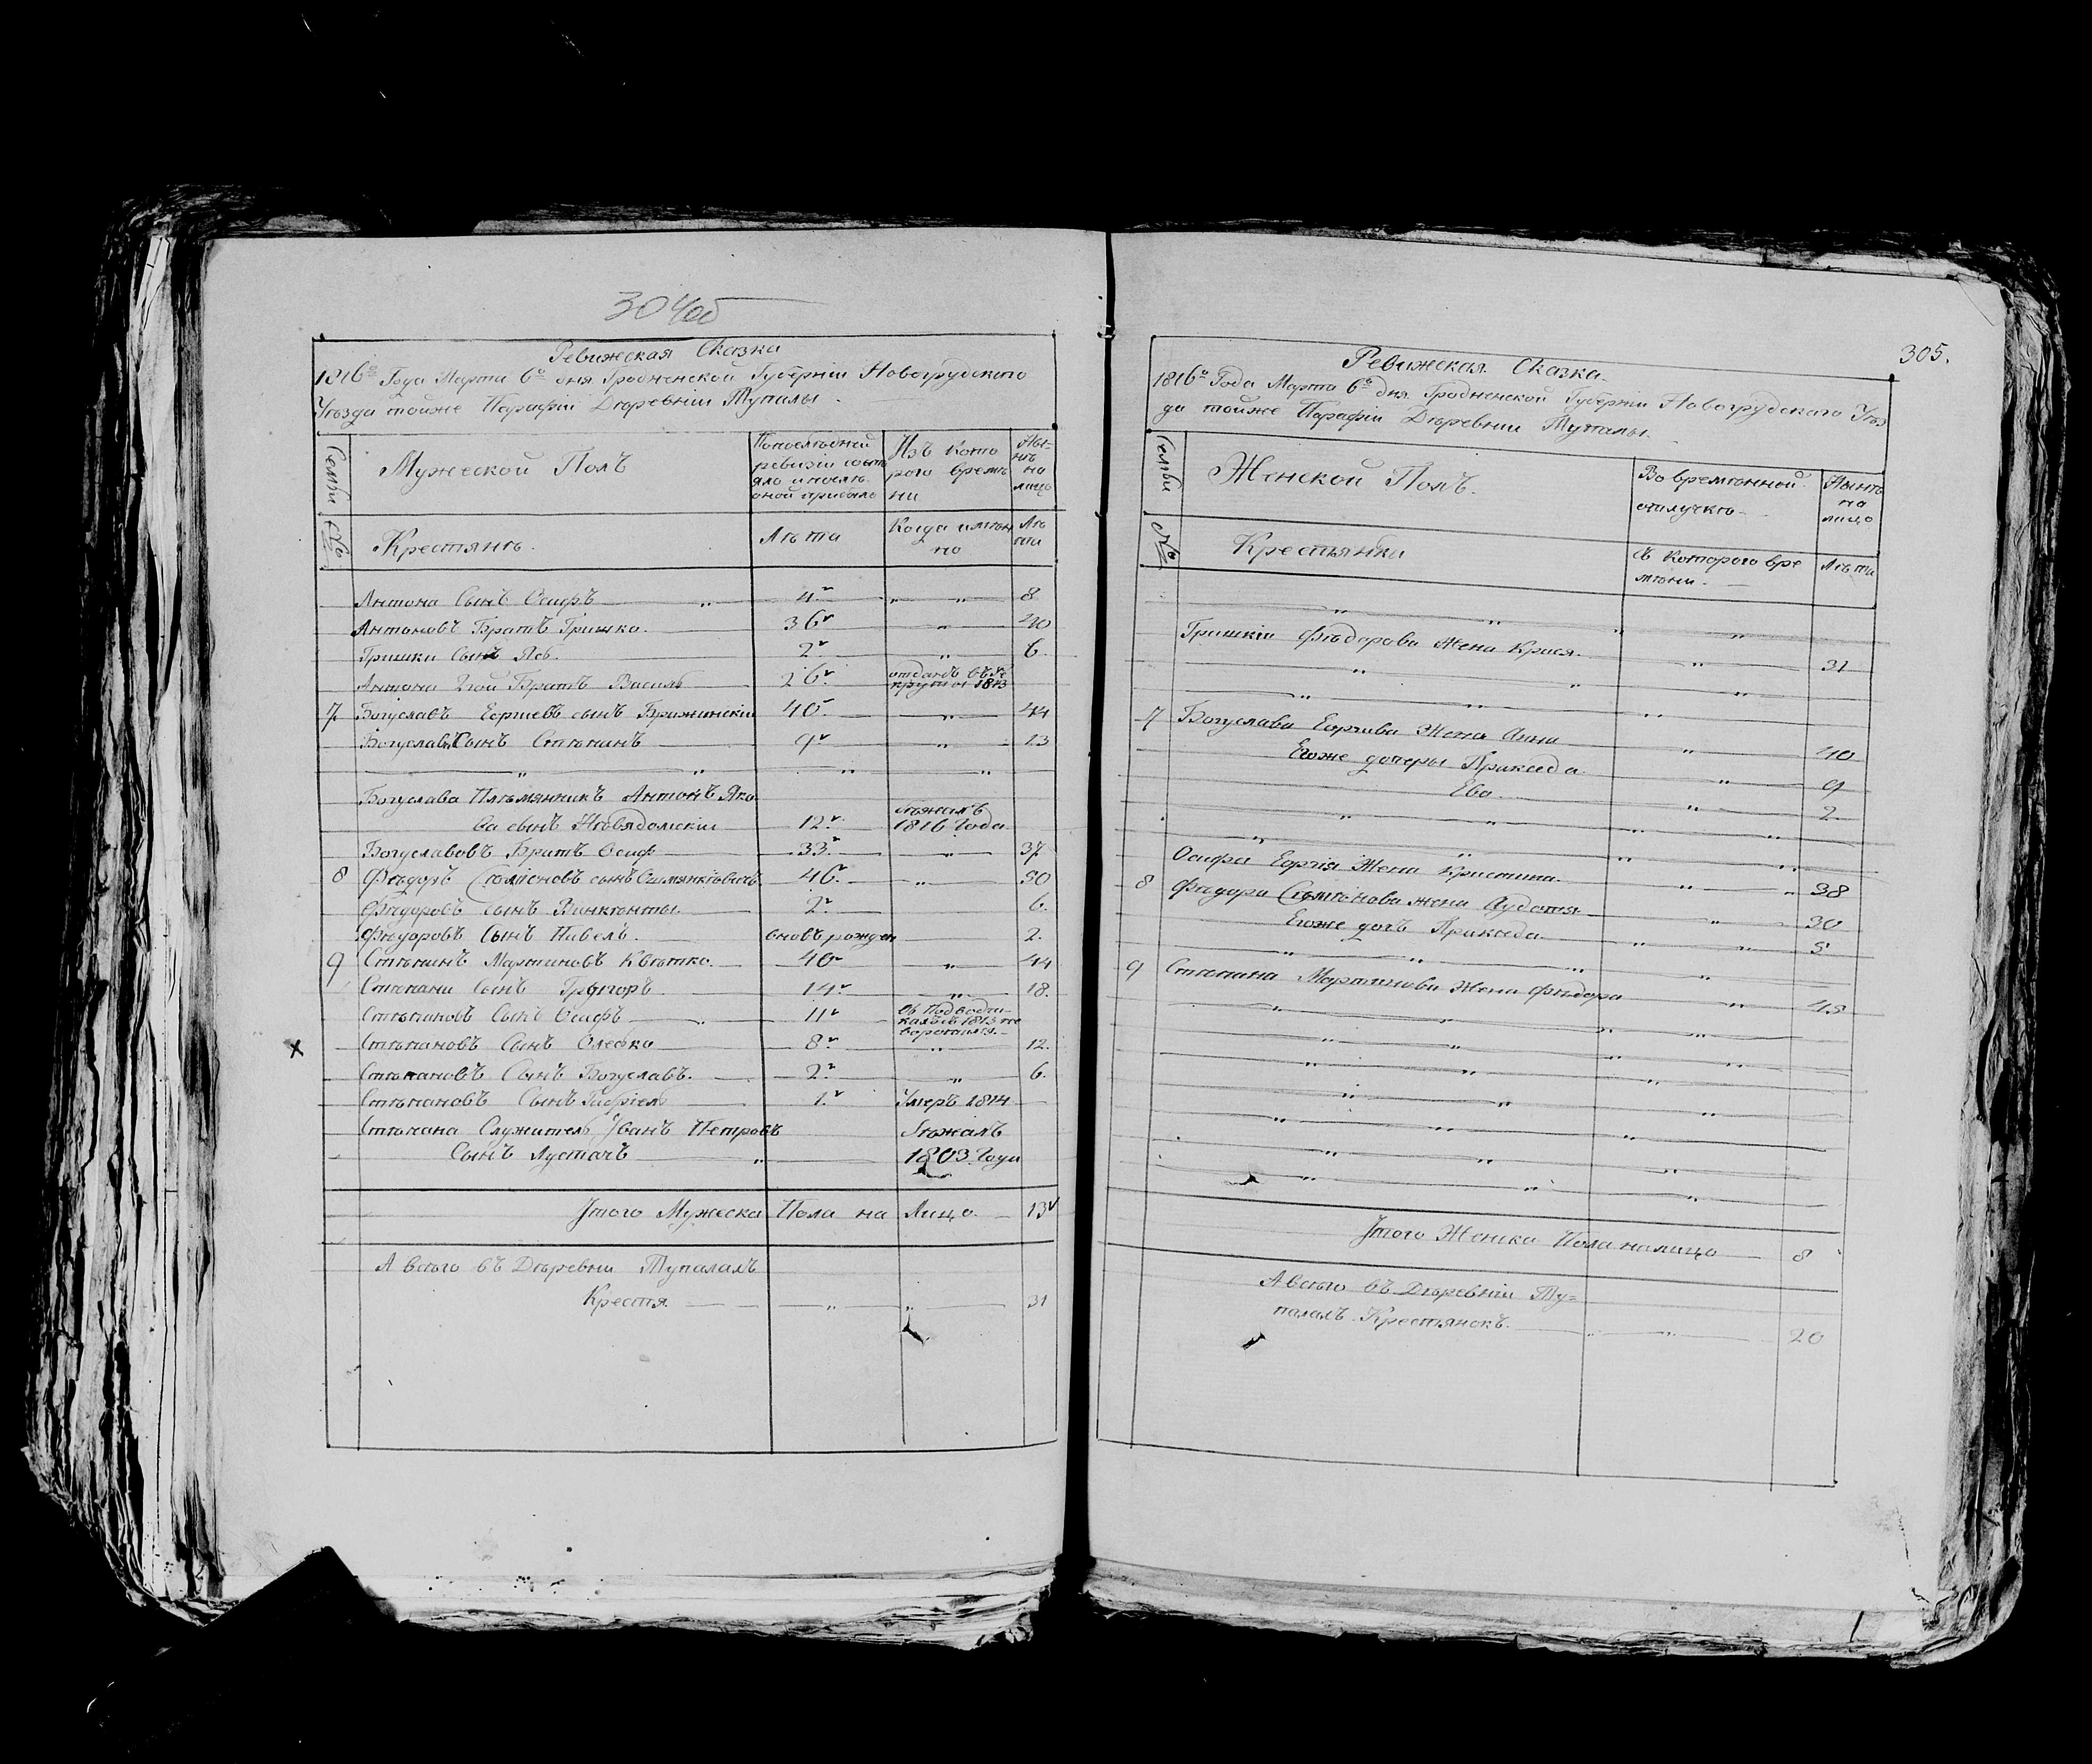 304об
Ревижская Сказка
1816го Года Марта 6го дня Гродненской Губернiи Новогрудского
Уѣзда тойже Парафiи Дѣревнiи Тупалы.
Семьи
Мужеской Полъ
Попослѣдней
ревизiи состо
яло и послѣ
оной прибыло
Изъ кото
рого времѣ
ни
Ны-
нѣ
на
лицо
№
Крестянъ.
Лѣта
Когда имян
но
Лѣ
та
Антона Сынъ Осифъ 4. " 8
Антоновъ Братъ Гришко. 36 " 40
Гришки Сынъ Ясь. 2 " 6.
Антона 2гой Братъ Василь 26. отданъ въ Ре
круты 1813
7 Богуславъ Еоргиевъ сынъ Брижинскiй 40. " 44
Богуслава Сынъ Стѣпанъ 9 " 13
" " " "
Богуслава Плѣмянникъ Антонъ Яко
ва сынъ Нѣвядомскiи 12. бѣжалъ
1816 Года
Богуславовъ Братъ Осиф 33 " 37
8 Фѣдоръ Сѣмiоновъ сынъ Ошмянковичъ 46. " 50
Фѣдоровъ сынъ Винкѣнты 2 6.
Фѣдоровъ Сынъ Павелъ. вновъ рожден 2.
9 Стѣпанъ Мартиновъ Квѣтко. 40 " 44
Стѣпана Сынъ Григоръ 14 " 18.
Стѣпановъ Сынъ Осифъ 11 въ Подводчи-
калъ въ 1813 не
воротился.
Стѣпановъ Сынъ Олеска 8. " 12.
Стѣпановъ Сынъ Богуславъ. 2. " 6.
Стѣпановъ Сынъ Габрiель 1. Умеръ 1814
Стѣпана Служитель Iванъ Петровъ бѣжалъ
Сынъ Лустачъ " 1803 Года
Iтого Мужеска Пола на Лицо. 13
А всѣго въ Дѣревни Тупалахъ
Крестя. " " 31
305.
Ревижская Сказка
1816го Года Марта 6го дня Гродненской Губернiи Новогрудского Уѣз
да тойже Парафiи Дѣревнiи Тупалы.
Семьи
Женской Полъ.
Во времѣнной
отлучкѣ
Нынѣ
на
лицо
№
Крестьянки
Съ Которого вре
мѣни.
Лѣта
" " " "
Гришкiи Фѣдорова Жена Крися. " 31
" " "
" " "
7 Богуслава Еоргива Жена Анна " 40
Егоже дочеры Пракседа. " 9
Ева. " 2.
" " " "
" " " "
Осифа Еоргiя Жена Кристина. " " 38
8 Фѣдора Сѣмiонова жена Аудотя " 30
Егоже дочъ Пракседа " " 5
" " " "
9 Стѣпана Мартинова Жена Фѣдора " 45
" " " "
" " "
" " "
" " "
" " "
" " "
" " "
Iтого Женска Пола налицо 8
А всѣго въ Дѣревнiи Ту=
палахъ Крестянокъ. " " 20